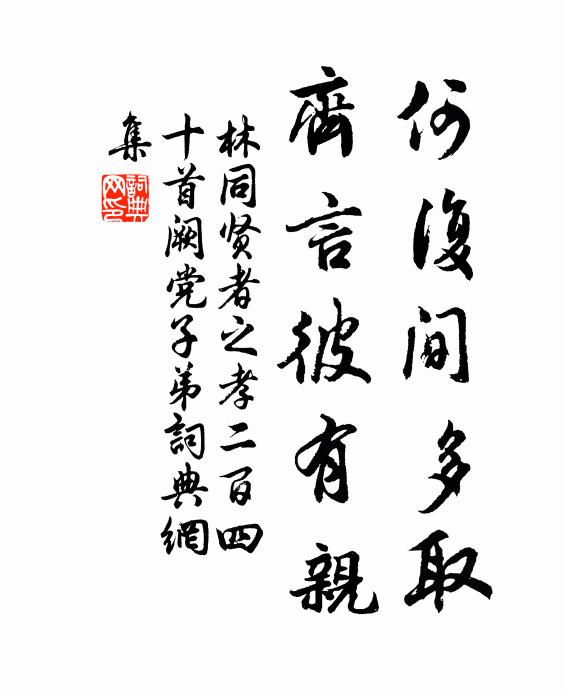 何復间多取
齊言彼有親
林同贤者之孝二百四
十首阙党子弟詞典網
集
詞典
网印